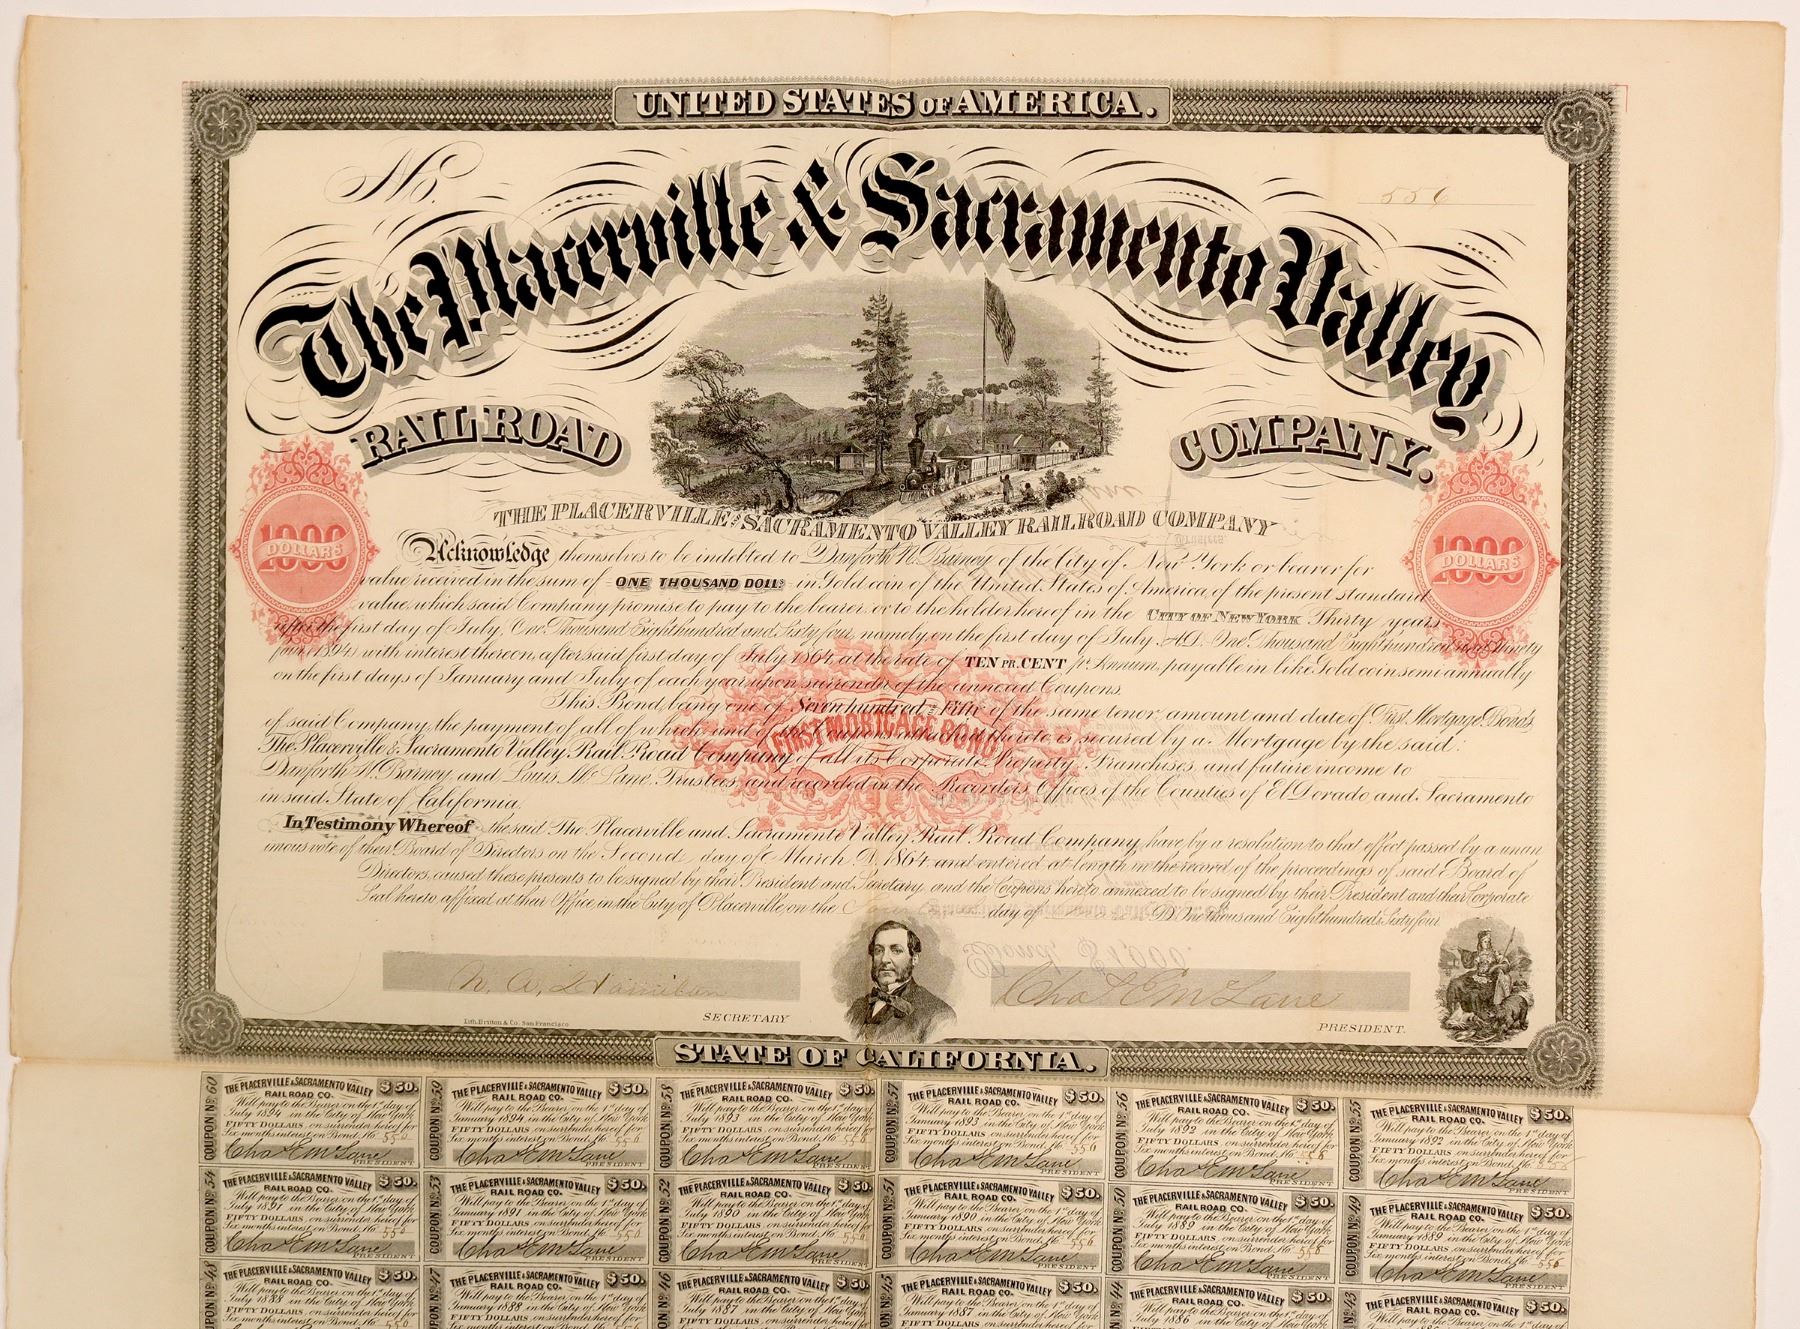 UNITED STATES OF AMERICA.
No. 556
The Placerville & Sacramento Valley
RAIL ROAD COMPANY.
THE PLACERVILLE AND SACRAMENTO VALLEY RAILROAD COMPANY
1000 DOLLARS
1000 DOLLARS
Acknowledge themselves to be indebted to Danforth N. Barney of the City of New York or bearer for
value received in the sum of ONE THOUSAND DOLLS. in Gold coin of the United States of America, of the present standard
value, which said Company promise to pay to the bearer or to the holder hereof in the CITY OF NEW YORK Thirty years
after the first day of July, One Thousand Eight hundred and Sixty four, namely on the first day of July A.D. One Thousand Eight hundred and Ninety
four, (1894) with interest thereon, after said first day of July 1864, at the rate of TEN PR. CENT pr. Annum, payable in like Gold coin semi annually
on the first days of January and July of each year, upon surrender of the annexed Coupons.
This Bond, being one of Seven hundred & Fifty of the same tenor, amount and date of First Mortgage Bonds
of said Company, the payment of all of which, and of the thereto is secured by a Mortgage by the said:
FIRST MORTGAGE BOND
The Placerville & Sacramento Valley Rail Road Company of all its Corporate Property, Franchises, and future income to
Danforth N. Barney, and Louis McLane, Trustees, and recorded in the Recorders Offices of the Counties of El Dorado and Sacramento
in said State of California.
In Testimony Whereof the said The Placerville and Sacramento Valley Rail Road Company, have by a resolution to that effect passed by a unan
imous vote of their Board of Directors on the Second day of March A.D. 1864 and entered at length in the record of the proceedings of said Board of
Directors, caused these presents to be signed by their President and Secretary, and the Coupons hereto annexed to be signed by their President and their Corporate
Seal hereto affixed at their Office, in the City of Placerville, on the day of A.D. One thousand Eight hundred & Sixty four
Chas E McLane
Lith. Britton & Co. San Francisco
SECRETARY
PRESIDENT.
STATE OF CALIFORNIA.
COUPON No. 60 THE PLACERVILLE & SACRAMENTO VALLEY $50.
RAIL ROAD CO.
Will pay to the Bearer, on the 1st day of
July 1894 in the City of New York
FIFTY DOLLARS on surrender hereof for
Six months interest on Bond No. 556
Chas E McLane
PRESIDENT
COUPON No. 59 THE PLACERVILLE & SACRAMENTO VALLEY $50.
RAIL ROAD CO.
Will pay to the Bearer, on the 1st day of
January 1894 in the City of New York
FIFTY DOLLARS on surrender hereof for
Six months interest on Bond No. 556
Chas E McLane
PRESIDENT
COUPON No. 58 THE PLACERVILLE & SACRAMENTO VALLEY $50.
RAIL ROAD CO.
Will pay to the Bearer, on the 1st day of
July 1893 in the City of New York
FIFTY DOLLARS on surrender hereof for
Six months interest on Bond No. 556
Chas E McLane
PRESIDENT
COUPON No. 57 THE PLACERVILLE & SACRAMENTO VALLEY $50.
RAIL ROAD CO.
Will pay to the Bearer, on the 1st day of
January 1893 in the City of New York
FIFTY DOLLARS on surrender hereof for
Six months interest on Bond No. 556
Chas E McLane
PRESIDENT
COUPON No. 56 THE PLACERVILLE & SACRAMENTO VALLEY $50.
RAIL ROAD CO.
Will pay to the Bearer, on the 1st day of
July 1892 in the City of New York
FIFTY DOLLARS on surrender hereof for
Six months interest on Bond No. 556
Chas E McLane
PRESIDENT
COUPON No. 55 THE PLACERVILLE & SACRAMENTO VALLEY $50.
RAIL ROAD CO.
Will pay to the Bearer, on the 1st day of
January 1892 in the City of New York
FIFTY DOLLARS on surrender hereof for
Six months interest on Bond No. 556
Chas E McLane
PRESIDENT
COUPON No. 54 THE PLACERVILLE & SACRAMENTO VALLEY $50.
RAIL ROAD CO.
Will pay to the Bearer, on the 1st day of
July 1891 in the City of New York
FIFTY DOLLARS on surrender hereof for
Six months interest on Bond No. 556
Chas E McLane
PRESIDENT
COUPON No. 53 THE PLACERVILLE & SACRAMENTO VALLEY $50.
RAIL ROAD CO.
Will pay to the Bearer, on the 1st day of
January 1891 in the City of New York
FIFTY DOLLARS on surrender hereof for
Six months interest on Bond No. 556
Chas E McLane
PRESIDENT
COUPON No. 52 THE PLACERVILLE & SACRAMENTO VALLEY $50.
RAIL ROAD CO.
Will pay to the Bearer, on the 1st day of
July 1890 in the City of New York
FIFTY DOLLARS on surrender hereof for
Six months interest on Bond No. 556
Chas E McLane
PRESIDENT
COUPON No. 51 THE PLACERVILLE & SACRAMENTO VALLEY $50.
RAIL ROAD CO.
Will pay to the Bearer, on the 1st day of
January 1890 in the City of New York
FIFTY DOLLARS on surrender hereof for
Six months interest on Bond No. 556
Chas E McLane
PRESIDENT
COUPON No. 50 THE PLACERVILLE & SACRAMENTO VALLEY $50.
RAIL ROAD CO.
Will pay to the Bearer, on the 1st day of
July 1889 in the City of New York
FIFTY DOLLARS on surrender hereof for
Six months interest on Bond No. 556
Chas E McLane
PRESIDENT
COUPON No. 49 THE PLACERVILLE & SACRAMENTO VALLEY $50.
RAIL ROAD CO.
Will pay to the Bearer, on the 1st day of
January 1889 in the City of New York
FIFTY DOLLARS on surrender hereof for
Six months interest on Bond No. 556
Chas E McLane
PRESIDENT
No. 48 THE PLACERVILLE & SACRAMENTO VALLEY $50.
RAIL ROAD CO.
Will pay to the Bearer, on the 1st day of
July 1888 in the City of New York
FIFTY DOLLARS on surrender hereof for
Six months interest on Bond No. 556
No. 47 THE PLACERVILLE & SACRAMENTO VALLEY $50.
RAIL ROAD CO.
Will pay to the Bearer, on the 1st day of
January 1888 in the City of New York
FIFTY DOLLARS on surrender hereof for
Six months interest on Bond No. 556
No. 46 THE PLACERVILLE & SACRAMENTO VALLEY $50.
RAIL ROAD CO.
Will pay to the Bearer, on the 1st day of
July 1887 in the City of New York
FIFTY DOLLARS on surrender hereof for
No. 45 THE PLACERVILLE & SACRAMENTO VALLEY $50.
RAIL ROAD CO.
Will pay to the Bearer, on the 1st day of
January 1887 in the City of New York
FIFTY DOLLARS on surrender hereof for
No. 44 THE PLACERVILLE & SACRAMENTO VALLEY $50.
RAIL ROAD CO.
Will pay to the Bearer, on the 1st day of
July 1886 in the City of New York
No. 43 THE PLACERVILLE & SACRAMENTO VALLEY $50.
RAIL ROAD CO.
Will pay to the Bearer, on the 1st day of